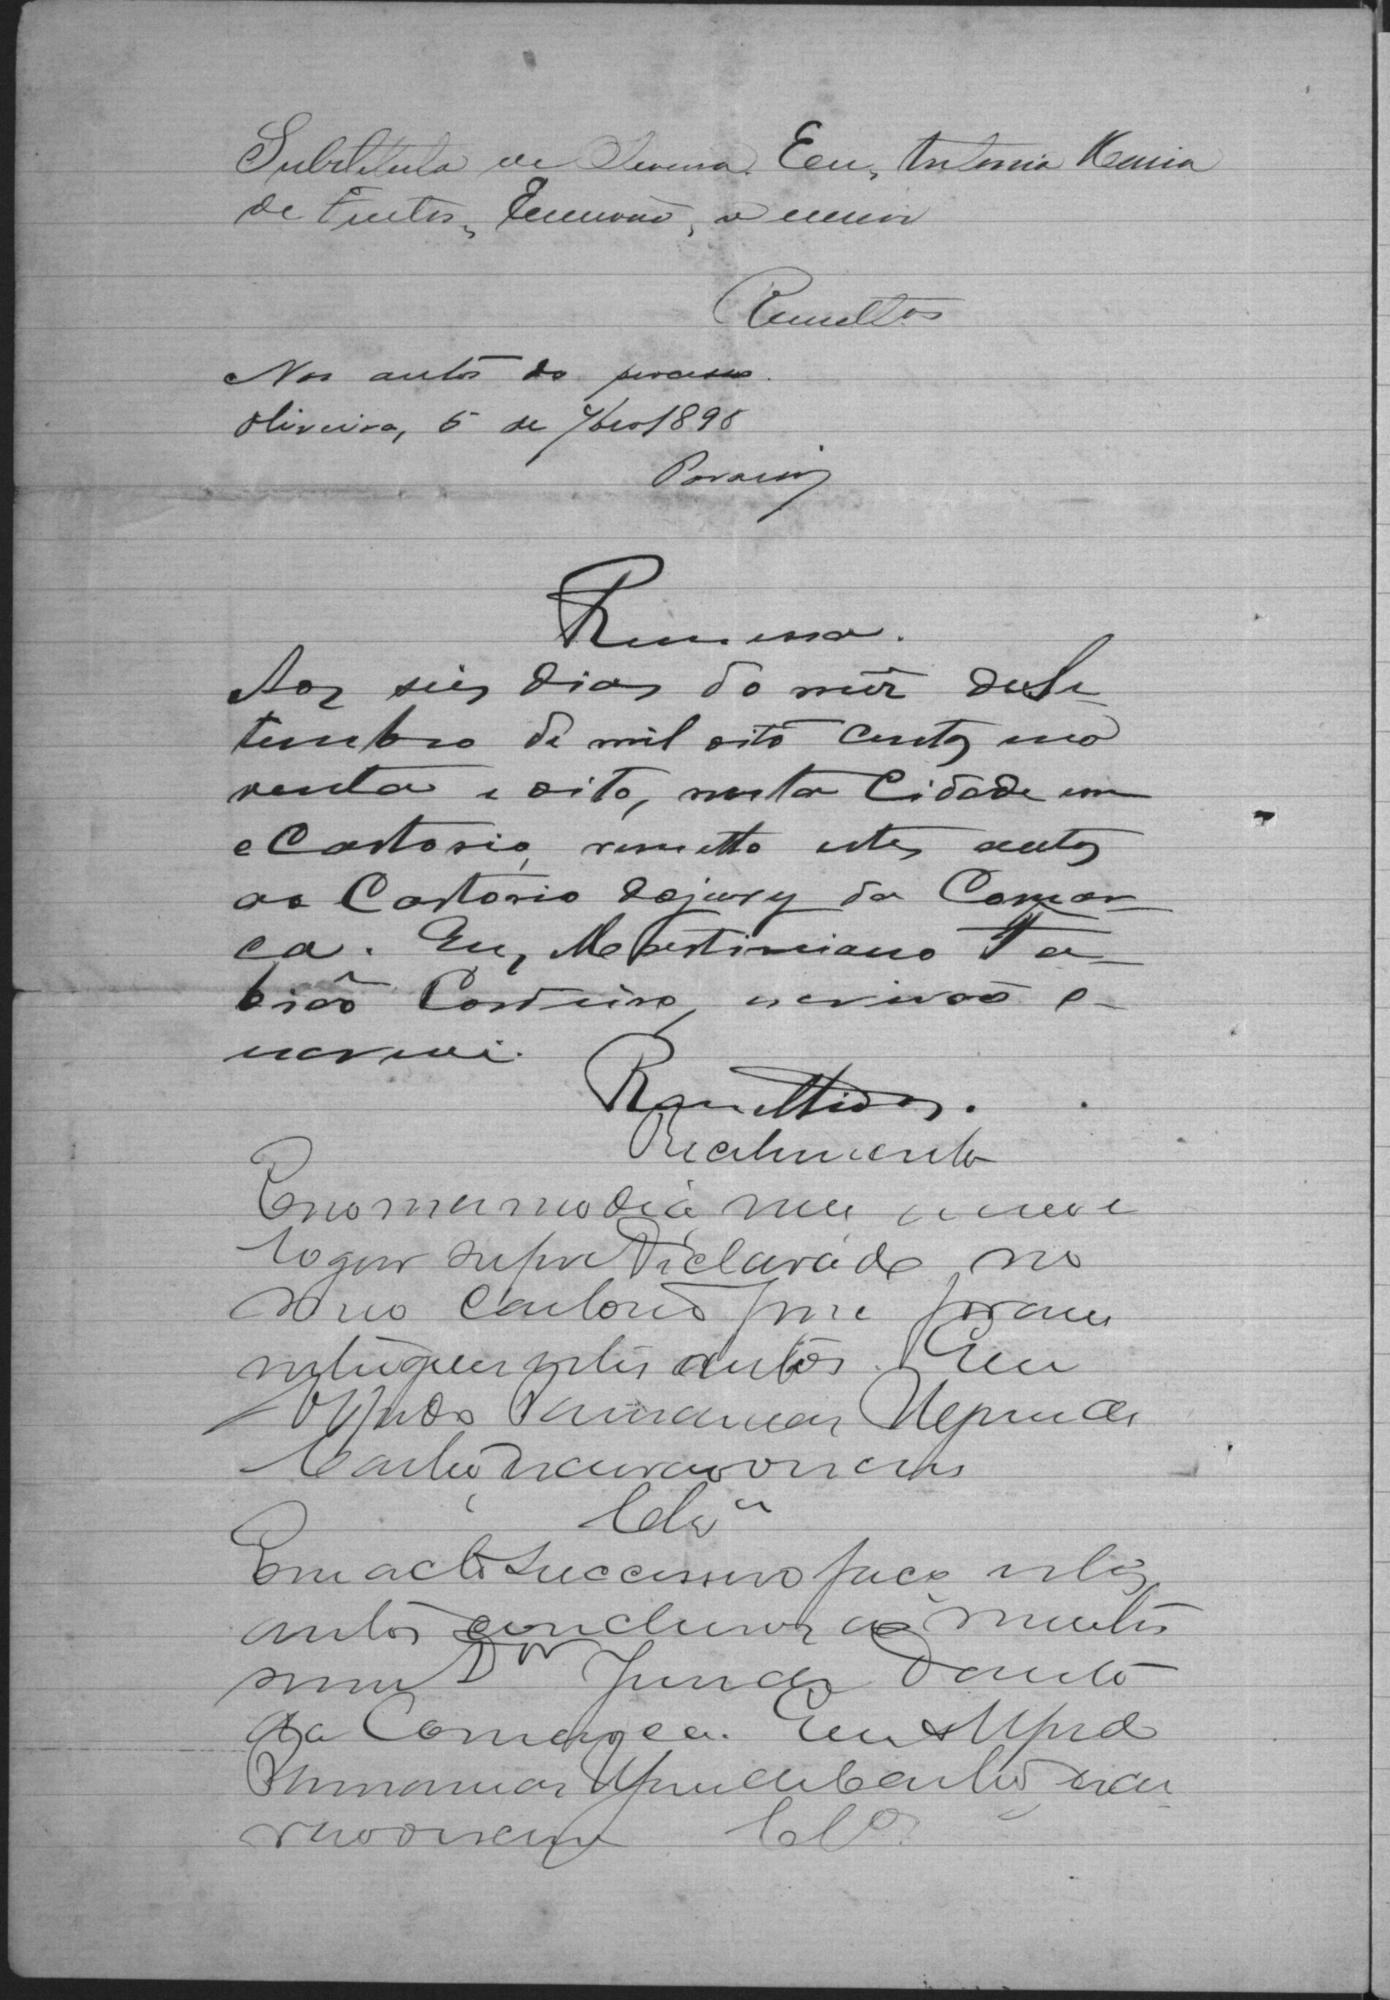 Substituto de Eu, Antonio Maria
de Escrivão, o escrevi
Remettos
Nos autos do processo.
Oliveira, 5 de 7bro 1898
Remessa.
Aos seis dias do mez de Se-
tembro de mil oito centos no
venta e oito, nesta Cidade em
Cartorio, remetto estes autos
ao Cartorio do jury da Comar-
ca. Eu, Martiniano Fa-
bião Cordeiro, escrivão e-
escrevi.
Remettidos.
Recebimento
E no mesmo dia mez e
logar supra declarado no
meo Cartorio me foram
entregues estes autos. Eu
de
Castro, escrivão
Clsão
Em acto successivo faço estes
autos conclusos ao meritis
simo Dor Juiz de Direito
da Comarca. Eu
de Castro, escri
vão o escrevi Clos